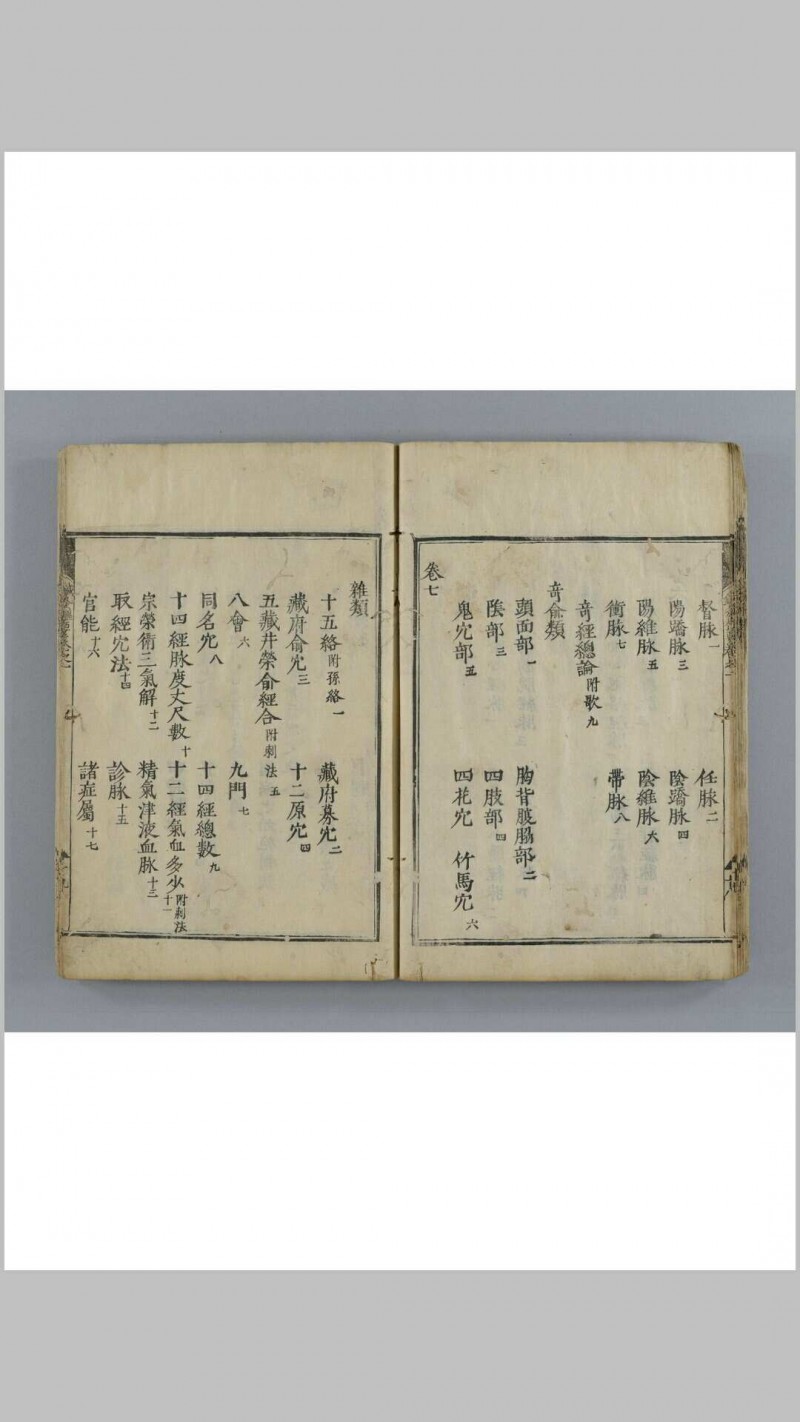 督脉一 任脉二
陽蹻脉三 陰蹻脉四
陽維脉五 陰維脉六
衝脉七 帶脉八
奇經總論附歌九
奇俞類
頭面部一 胸背腹脇部二
陰部三 四肢部四
鬼穴部五 四花穴 竹馬穴六
卷七
雜類
十五絡附孫絡一 藏府募穴二
藏府俞穴三 十二原穴四
五藏井榮俞經合附刺法五
八會六 九門七
同名穴八 十四經總數九
十四經脉度丈尺數十 十二經氣血多少附刺法十一
宗榮衛三氣解十二 精氣津液血脉十三
取經穴法十四 診脉十五
官能十六 諸症屬十七